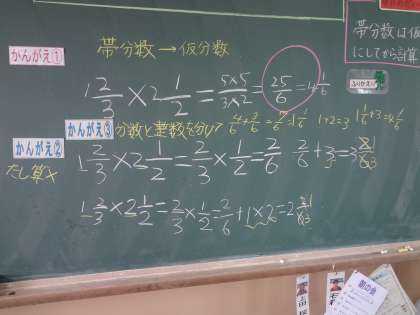 帯分数→仮分数
帯分数は仮
にしてから計算
かんがえ①
1 2/3 × 2 1/2 = 5×5/3×2 = 25/6 = 4 1/6
ふりかえり
かんがえ③
分数と整数を分けて 4/6 + 3/6 = 7/6 = 1 1/6 1+2=3 1 1/6+3=4 1/6
かんがえ②
たし算×
1 2/3 × 2 1/2 = 2/3 × 1/2 = 2/6 2/6 + 3 = 3 2/6
1 2/3 × 2 1/2 = 2/3 × 1/2 = 2/6 + 1×2 = 2 2/6
朝の会